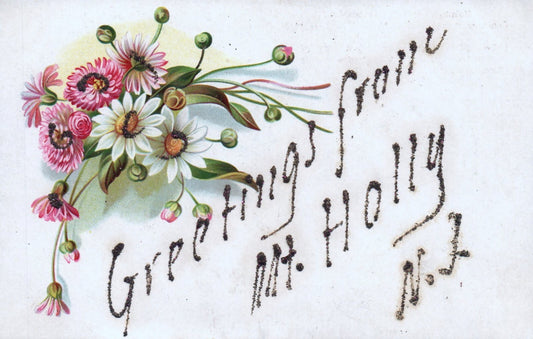 Greetings from
Mt. Holly
N.J.